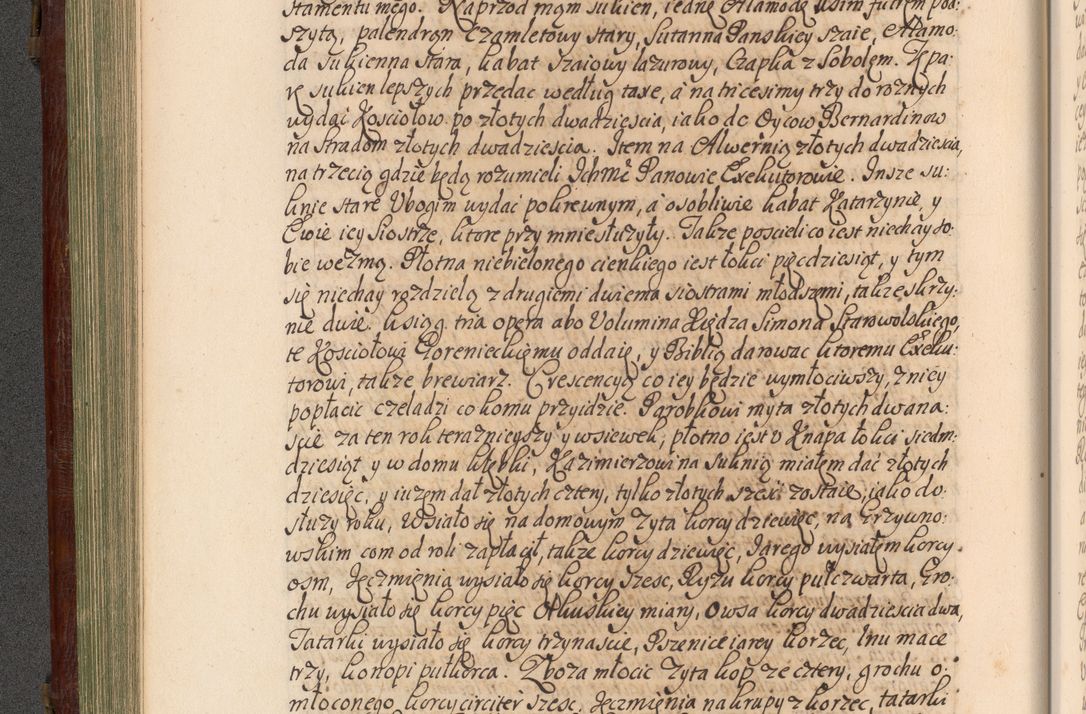 stamentu mego. Naprzod mąm sukien, iednę Alamodę lisim futrem pod-
szytą, palendrąn Czamletowy stary, Sutanna Panskiey szaie, Alamo-
da sukienna stara, kabat szaiowy lazurowy, Czapka z Sobolem. Z pa-
rę sukien lepszych przedac według taxe, a na tricesimy trzy do roznych
wydać Kosciołow po złotych dwadziescia, iako do Oycow Bernardinow
na Stradom złotych dwadziescia. Item na Alwernią złotych dwadziescia,
na trzecią gdzie będą rozumieli Ichmć Panowie Exekutorowie. Insze su-
knie stare Ubogim wydać pokrewnym, a osobliwie kabat Katarzynie, y
Ewie iey siostrze, ktore przy mnie służyły. Także poscieli co iest niechay so-
bie wezmą. Płotna niebielonego cienkiego iest łokci pięcdziesiąt, y tym
się niechay rozdzielą z drugiemi dwiema siostrami młodszemi, także skrzy-
nie dwie. Ksiąg tria opera abo Volumina Xiędza Simona Starowolskiego,
te Kosciołowi Goreniеckiemu oddaię, y Biblią darowac ktoremu Exeku-
torowi, także brewiarz. Crescencyą co iey będzie wymłociwszy, z niey
popłacic czeladzi co komu przyidzie. Parobkowi myta złotych dwana-
scie za ten rok teraznieyszy y wsiewek, płotno iest u Knapa łokci siedm-
dziesiąt y w domu kłębki, Kazimierzowi na suknią miałem dać złotych
dziesięć, y iuzem dał złotych cztery, tylko złotych szesć zostaie, iako do-
służy roku, Wsiało się na domowym zyta korcy dziewięc, na Grzywno-
wskim com od roli zapłacił, także korcy dziewięć, Jarego wysiałem korcy
osm, Jęczmienia wysiało się korcy szesc, Ryżu korcy pułczwarta, Gro-
chu wysiało się korcy pięc Olkuskiey miary, Owsa korcy dwadziescia dwa,
Tatarki wysiało się korcy trzynascie, Pszenice iarey korzec, lnu mace
trzy, konopi pułkorca. Zboża młocic żyta kop ze cztery, grochu o-
młoconego korcy circiter szesc, Jęczmienia na krupy z korzec, tatarki